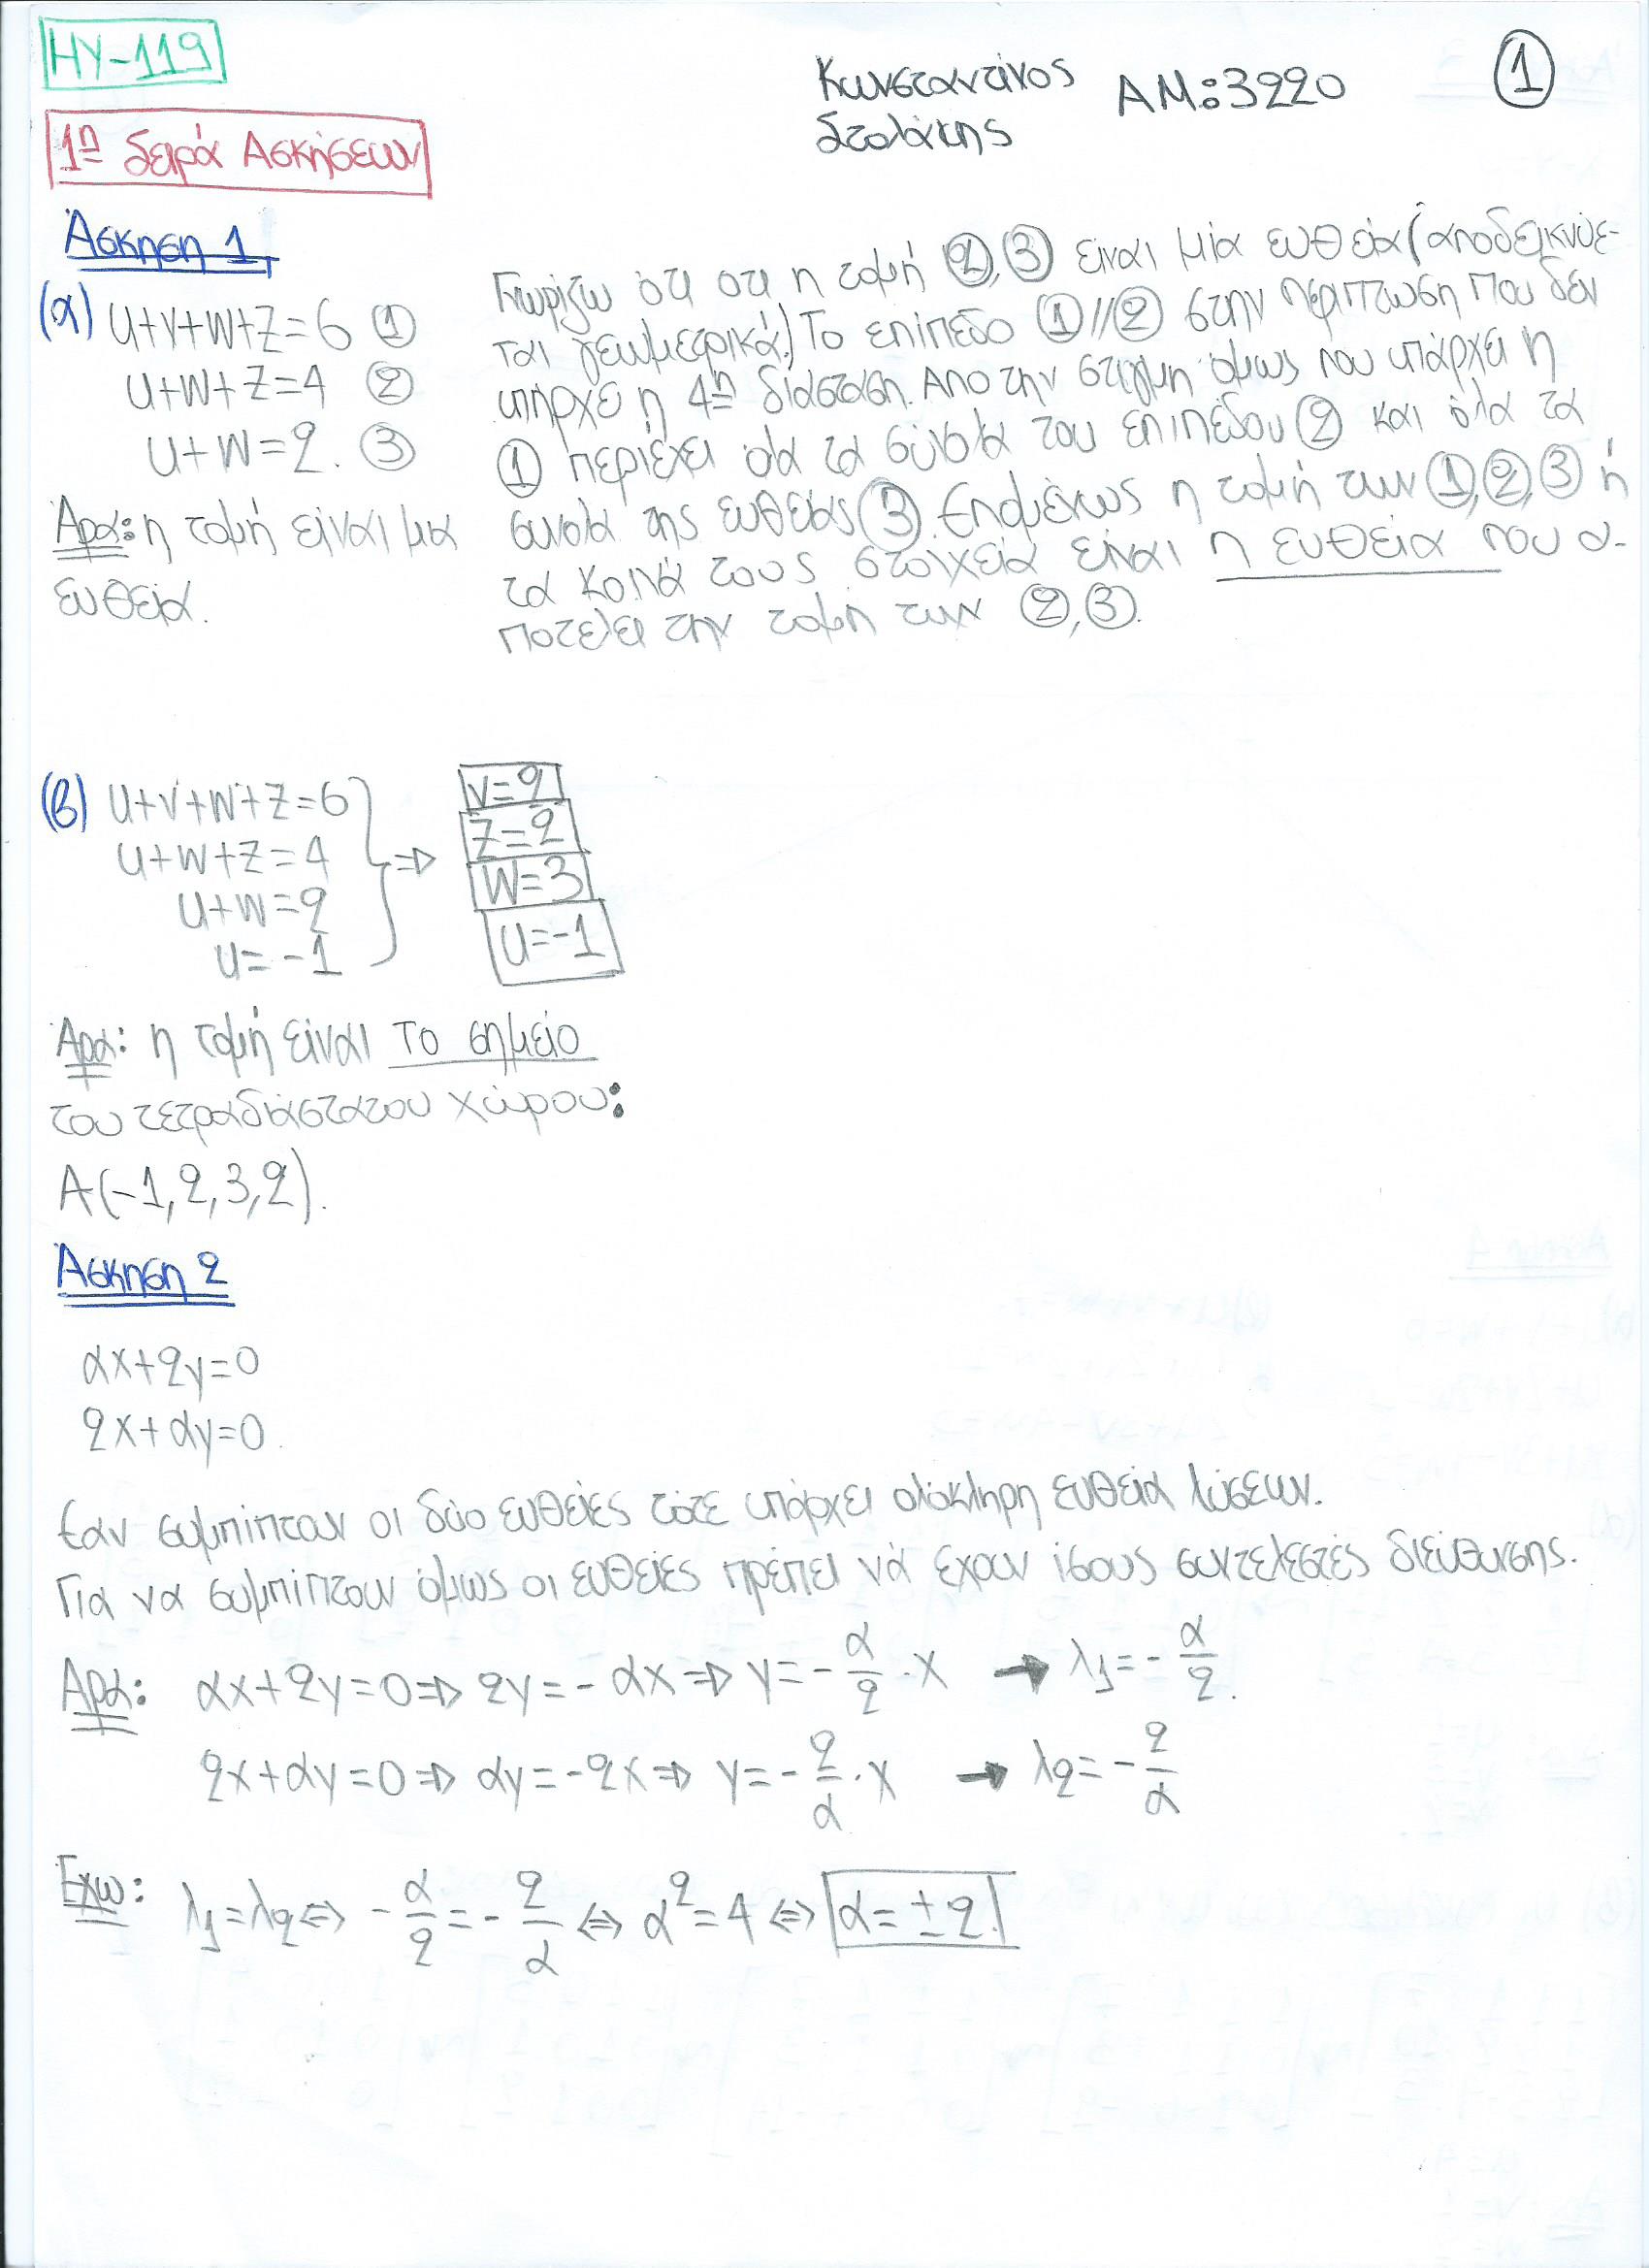 HY-119
Κωνσταντίνος
Στολάκης
ΑΜ:3220
1
1η Σειρά Ασκήσεων
Άσκηση 1
(α) u+v+w+z=6 ①
u+w+z=4 ②
u+w=2. ③
Άρα: η τομή είναι μια
ευθεία.
Γνωρίζω ότι οτι η τομή ②,③ είναι μία ευθεία (αποδεικνύε-
ται γεωμετρικά.) Το επίπεδο ①//② στην περίπτωση που δεν
υπήρχε η 4η διάσταση. Απο την στιγμη όμως που υπάρχει η
① περιέχει όλα τα του επιπέδου ② και όλα τα
της ευθείας ③. Επομένως η τομή των ①,②,③ ή
τα κοινά τους στοιχεία είναι η ευθεία που α-
ποτελει την τομη των ②,③.
(β) u+v+w+z=6
u+w+z=4
u+w=2
u=-1
⇒
v=2
z=2
w=3
u=-1
Άρα: η τομή είναι το σημείο
του τετραδιάστατου χώρου:
A(-1,2,3,2).
Άσκηση 2
αx+2y=0
2x+αy=0.
Εαν συμπίπτουν οι δύο ευθείες τότε υπάρχει ολόκληρη ευθεία λύσεων.
Για να συμπίπτουν όμως οι ευθείες πρέπει νά έχουν ίσους συντελεστές διεύθυνσης.
Άρα: αx+2y=0 ⇒ 2y=-αx ⇒ y=-α/2·x → λ1=-α/2.
2x+αy=0 ⇒ αy=-2x ⇒ y=-2/α·x → λ2=-2/α
Έχω: λ1=λ2 ⇔ -α/2=-2/α ⇔ α²=4 ⇔ α=±2.